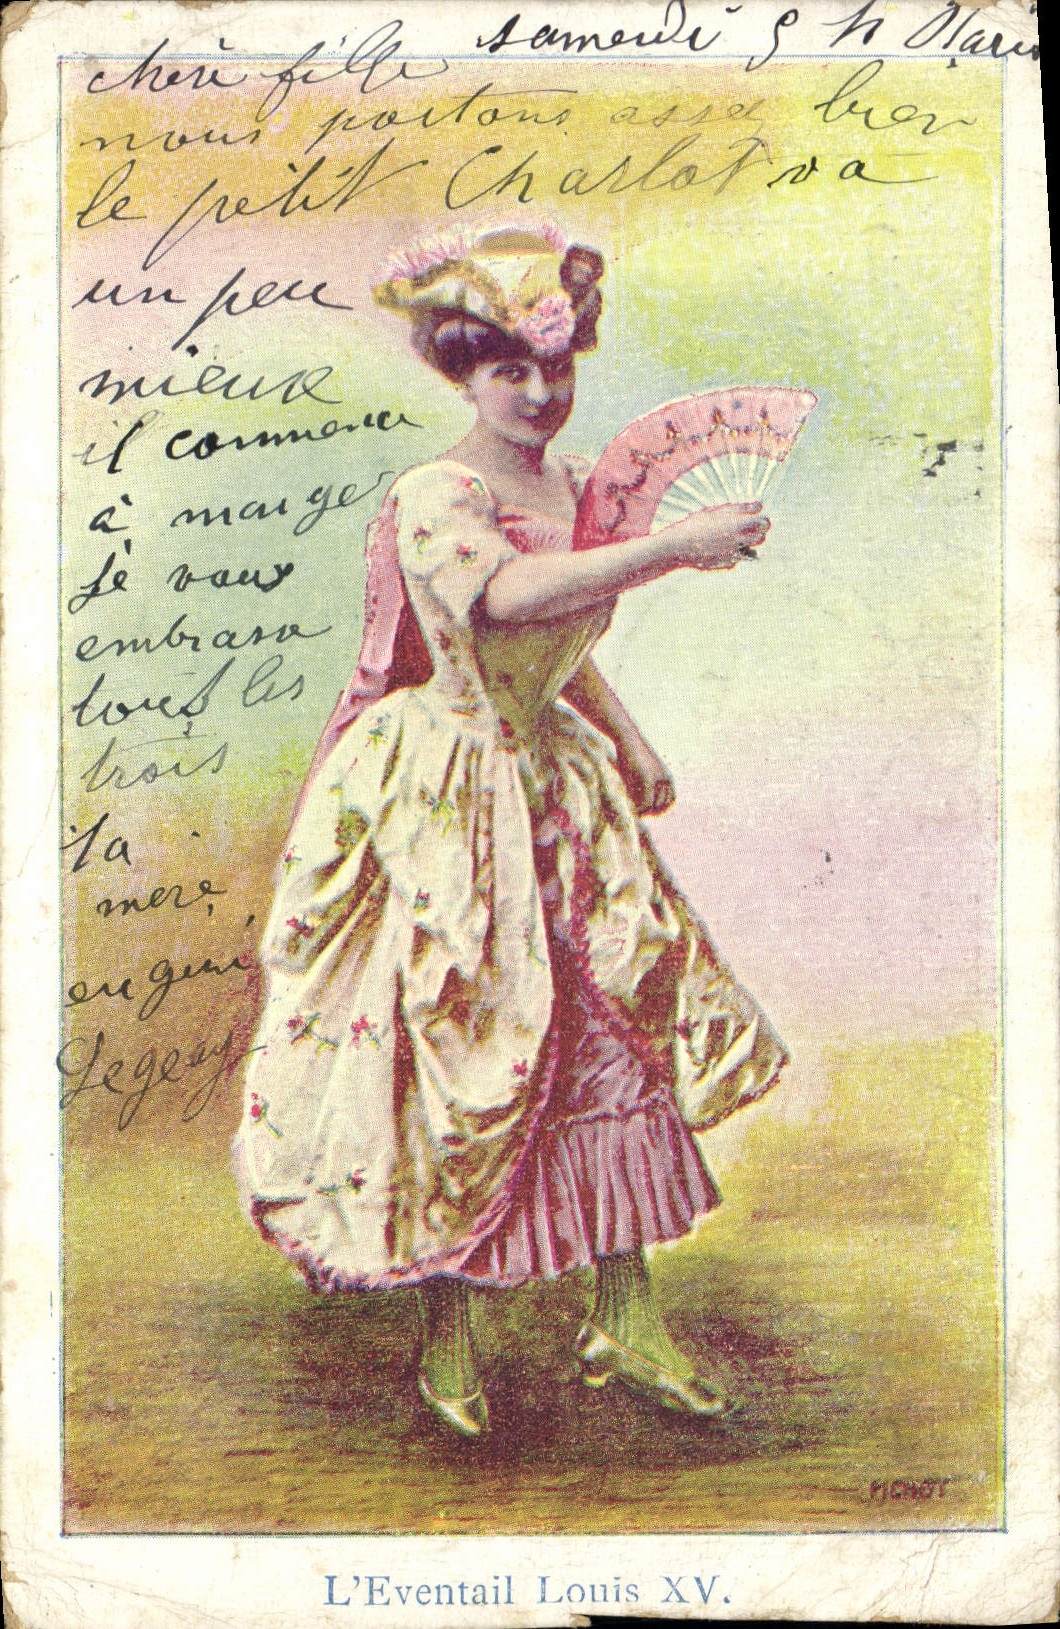 samedi 5 h Paris
chère fille
nous portons assez bien
le petit Charlot va
un peu
mieux
il commence
à manger
je vous
embrasse
tous les
trois
ta
mere
eugeni
Legeay
PICHOT
L'Eventail Louis XV.